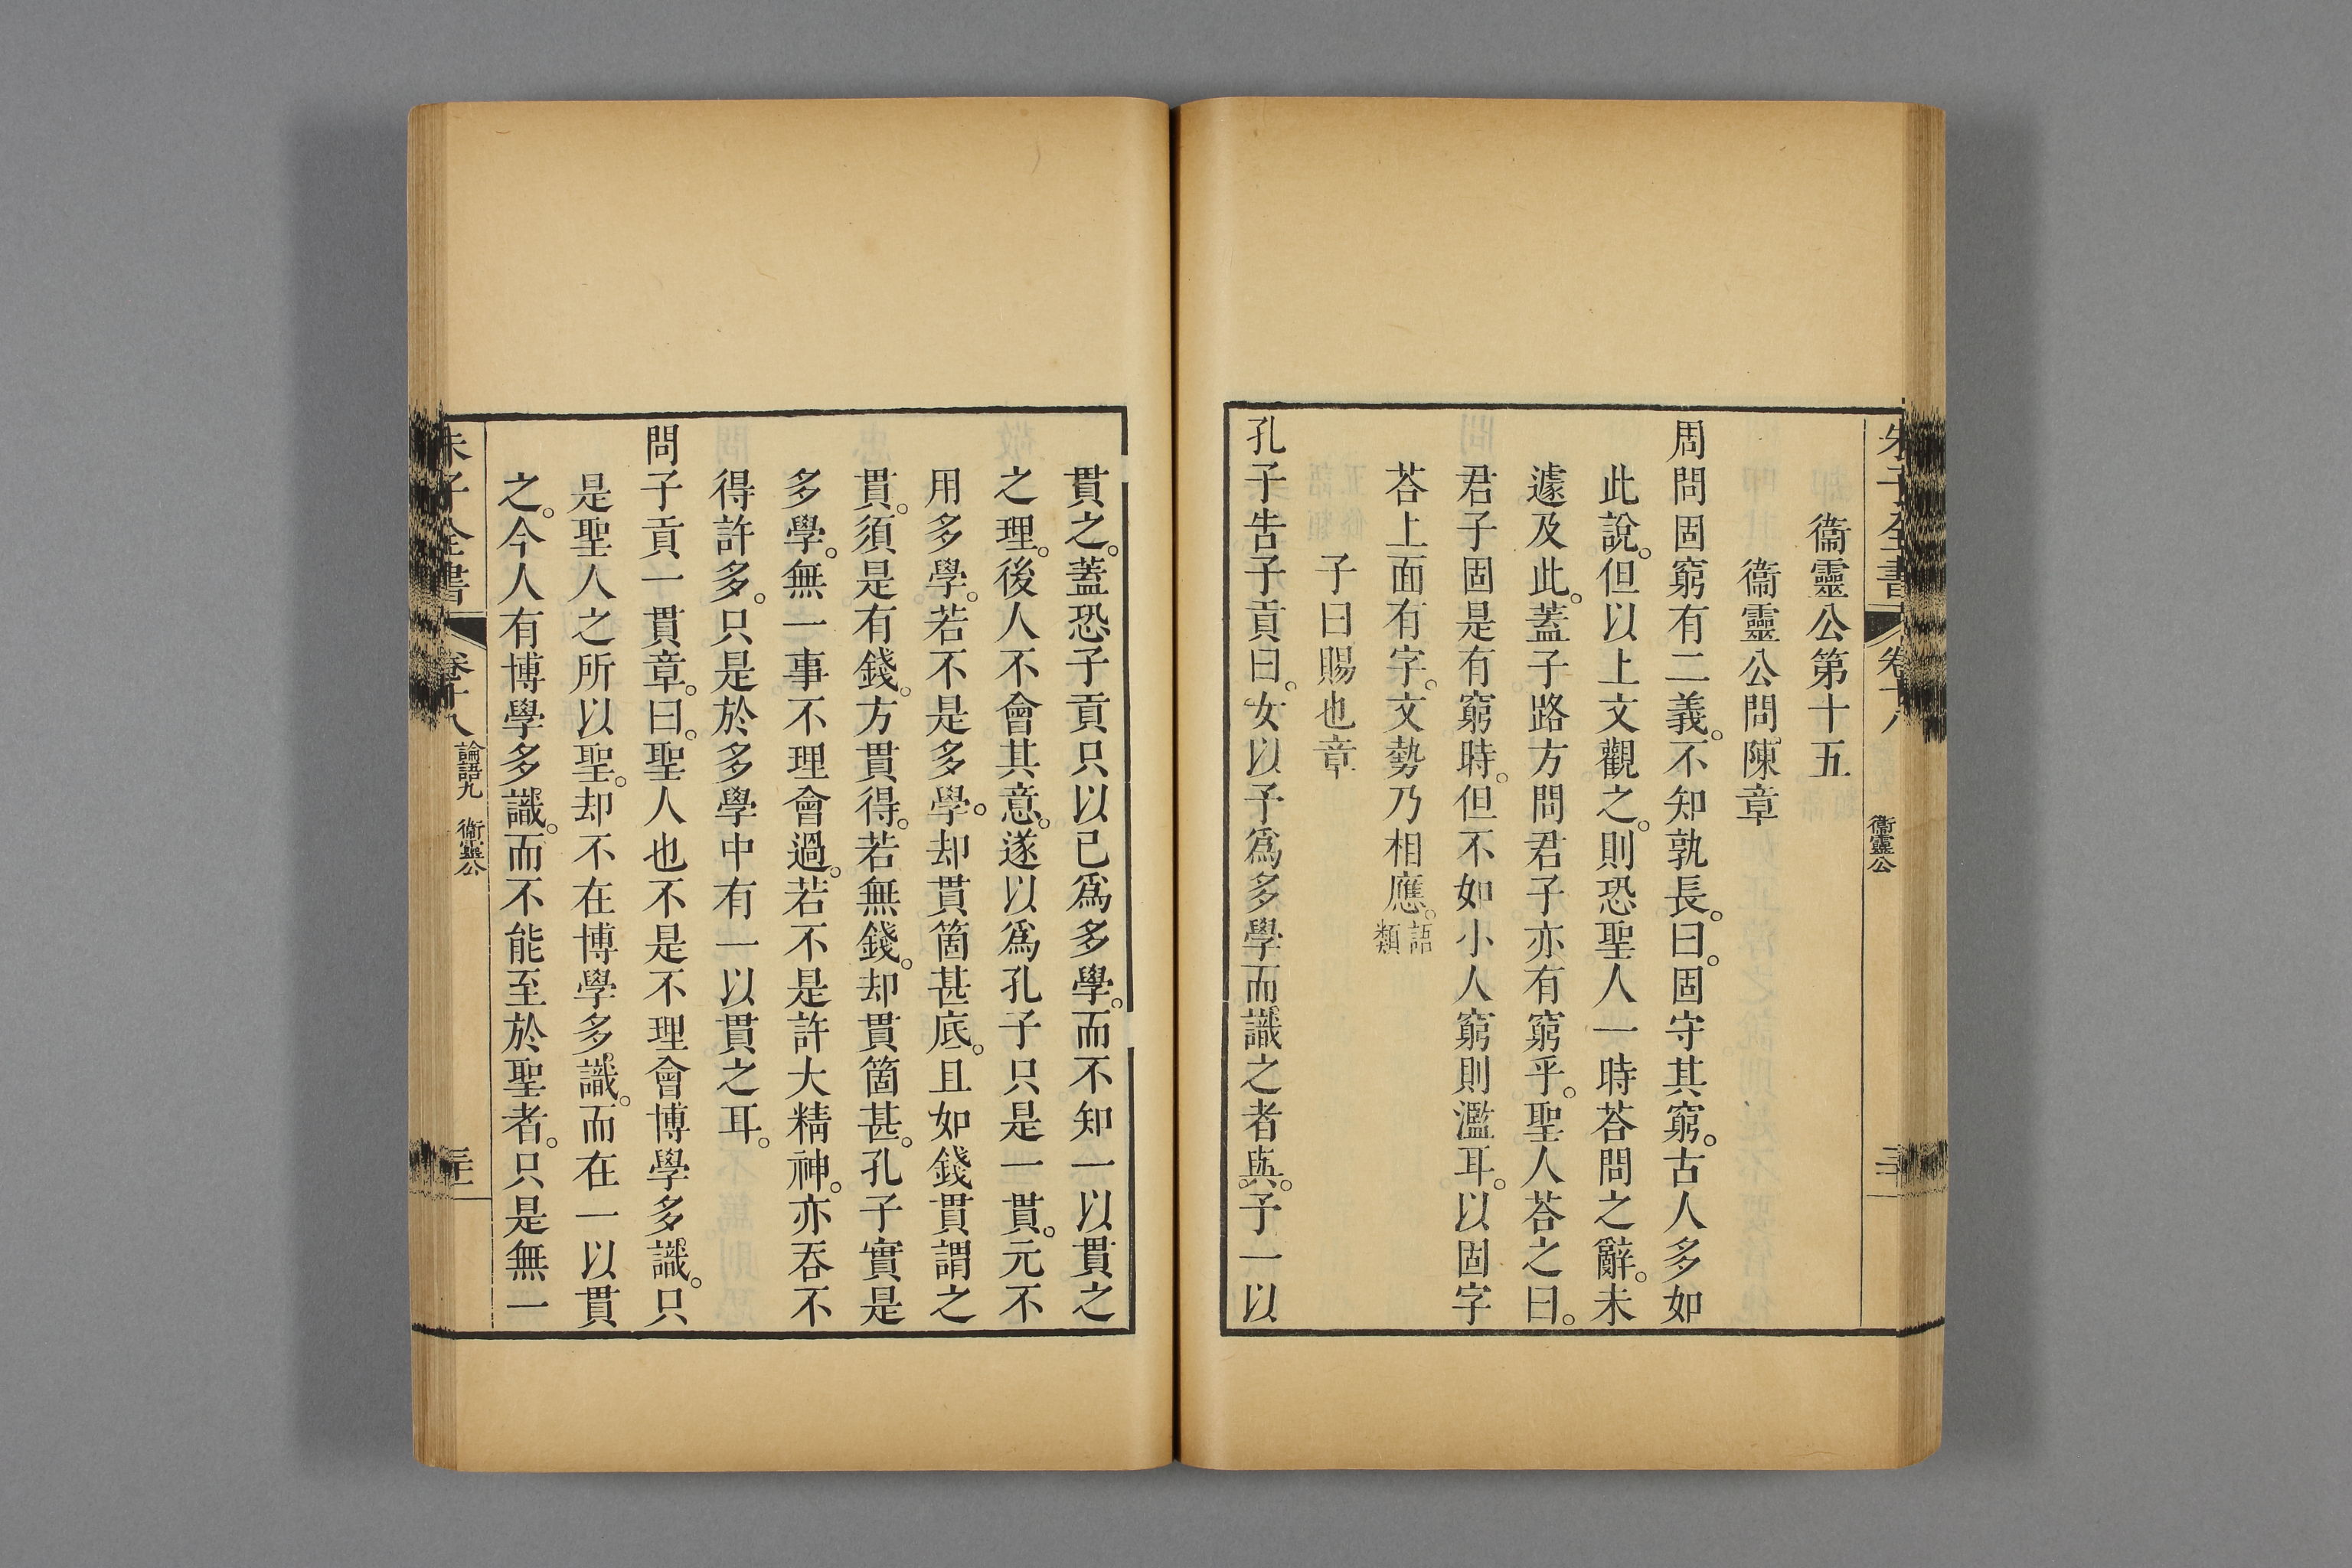 朱子全書 卷十八 衞靈公
衞靈公第十五
衞靈公問陳章
周問固窮有二義。不知孰長。曰。固守其窮。古人多如
此說。但以上文觀之。則恐聖人一時荅問之辭。未
遽及此。蓋子路方問君子亦有窮乎。聖人荅之曰。
君子固是有窮時。但不如小人窮則濫耳。以固字
荅上面有字。文勢乃相應。語類
子曰賜也章
孔子告子貢曰。女以予爲多學而識之者與。予一以
貫之。蓋恐子貢只以已爲多學。而不知一以貫之
之理。後人不會其意。遂以爲孔子只是一貫。元不
用多學。若不是多學。却貫箇甚底。且如錢貫謂之
貫。須是有錢。方貫得。若無錢。却貫箇甚。孔子實是
多學。無一事不理會過。若不是許大精神。亦吞不
得許多。只是於多學中有一以貫之耳。
問子貢一貫章。曰。聖人也不是不理會博學多識。只
是聖人之所以聖。却不在博學多識。而在一以貫
之。今人有博學多識。而不能至於聖者。只是無一
朱子全書 卷十八 論語九 衞靈公